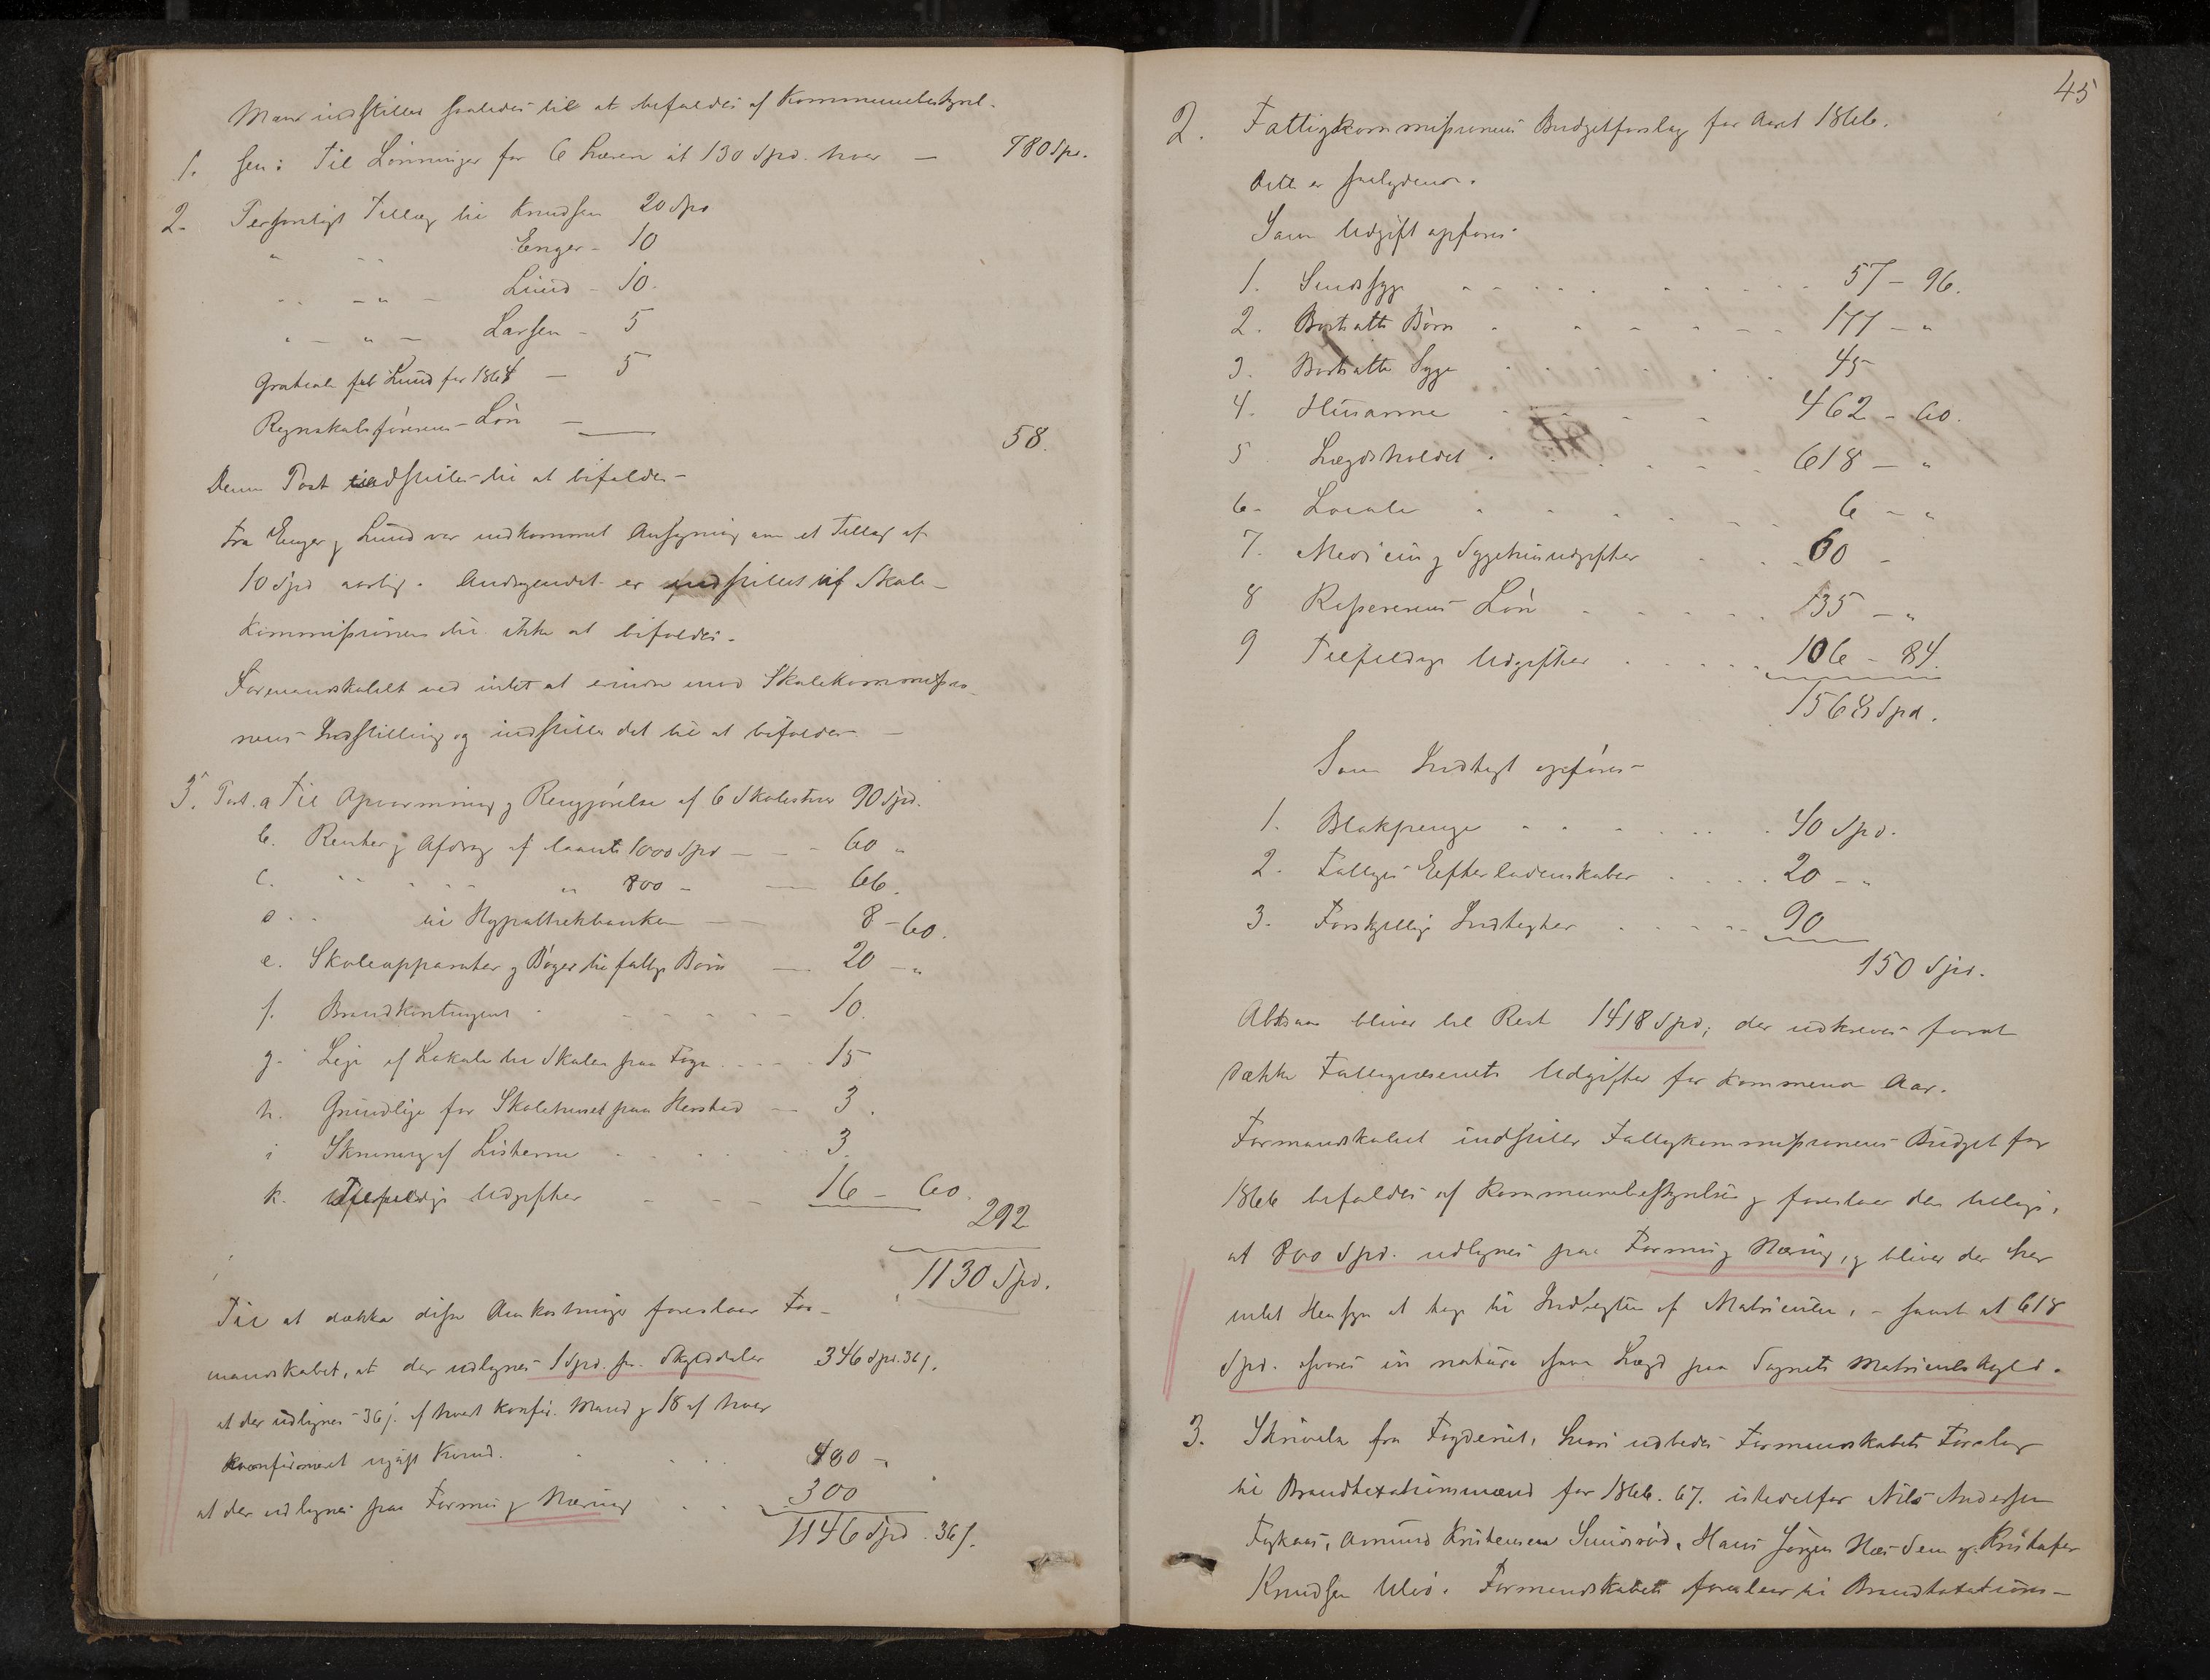 Man indstiller saaledes til at bifaldes af Kommunebestyrel-
1. sen: Til Lønninger for 6 Lærere at 130 Spd. hver — 780 Spd.
2. Personligt Tillæg til Knudsen 20 Spd
" - - Enger - 10
- - - " - Lund - 10.
" - " - Larsen - 5
Gratiale til Lund for 1864 — 5
Regnskabsførerens Løn — — 58.
Denne Post indstilles til at bifaldes -
Fra Enger og Lund var indkommet Ansøgning om et Tillæg af
10 Spd aarlig. Andragendet er indstillet af Skole-
kommissionen til ikke at bifaldes.
Formandskabet ved intet at erindre mod Skolekommissio-
nens Indstilling og indstiller det til at bifaldes -
3. Post. a Til Opvarmning og Rengjørelse af 6 Skolestuer 90 Spd.
b. Renter og Afdrag af laante 1000 Spd — - - 60 "
c. " " " " 800 - — 66.
d. - - til Hypothekbanken — 8 - 60.
e. Skoleapparater og Bøger til fattige Børn — 20 - "
f. Brandkontingent - - - - - - 10.
g. Leje af Lokale til Skolen paa Fogn . - - - 15
h. Grundleje for Skolehuset paa Herstad — 3.
i Skruning af Listerne . . . . . 3.
k. Tilfældige Udgifter - - - 16 - 60.
292
1130 Spd.
Til at dække disse Omkostninger foreslaar For-
mandskabet, at der udlignes 1 Spd. pr. Skylddaler 346 Spd. 36 s.
at der udlignes 36 s. af hver konfir. Mand og 18 af hver
konfirmeret ugift Kvind. . . . 480 -
at der udlignes paa Formue og Næring . . 300
1146 Spd. 36 s.
45
2. Fattigkommissionens Budgetforslag for Aaret 1866.
Dette er saalydende.
Som Udgift opføres
1. Sindssyge - - - - - - - - 57 - 96.
2. Bortsatte Børn - - - - - - 177 - "
3. Bortsatte Syge - - - - - 45
4. Husarme - - - - - 462 - 60.
5 Lægdsholdet - . - - - 618 - "
6 - Locale - - - - - - 6 - "
7. Medicin og Sygehusudgifter - . . 60 -
8 Kassererens Løn - - - - - 135 - "
9 Tilfældige Udgifter . . . . . 106 - 84.
1568 Spd.
Som Indtægt opføres -
1. Blakpenge - - - - - - 40 Spd.
2. Fattiges Efterladenskaber . . . . 20 - "
3. Forskjellige Indtægter . - - - - 90
150 Spd.
Altsaa bliver til Rest 1418 Spd; der udkræves forat
dække Fattigvæsenets Udgifter for kommende Aar.
Formandskabet indstiller Fattigkommissionens Budget for
1866 bifaldes af Kommunebestyrelsen og foreslaar den tillige,
at 800 Spd. udlignes paa Formue og Næring, og bliver der her
intet Hensyn at tage til Indtægten af Matriculen, - samt at 618
Spd. svares in natura som Lægd paa Sognets Matriculskyld.
3. Skrivelse fra Fogderiet, hvori udbedes Formandskabets Forslag
til Brandtaxationsmænd for 1866. 67. istedetfor Nils Andersen
Amund Kristensen Hans Jørgen Næs Sem og Kristofer
Knudsen Formandskabet foreslaar til Brandtaxations-